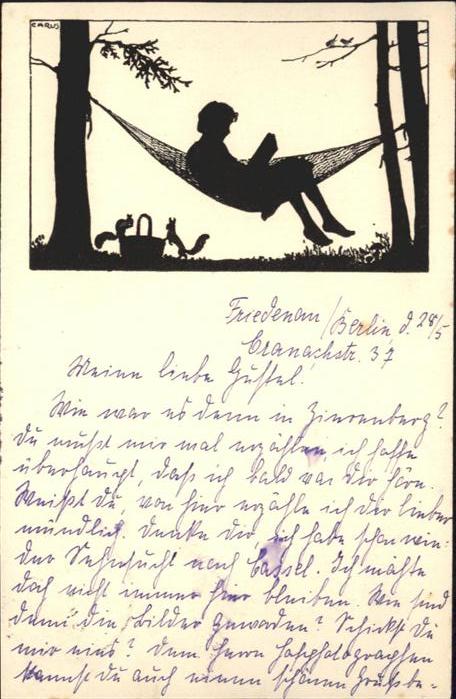 CARUS
Friedenau/Berlin, d. 28/5
Cranachstr. 37
Meine liebe Gustel!
Wie war es denn in Zierenberg?
Du mußt mir mal erzählen, ich hoffe
überhaupt, daß ich bald von dir höre.
Weißt du, von hier erzähle ich dir lieber
mündlich. Denke dir, ich habe schon wie-
der Sehnsucht nach Cassel. Ich möchte
doch nicht immer hier bleiben. Wie sind
denn die Bilder geworden? Schickst du
mir eins? Dem Herrn Hofphotographen
kannst du auch einen schönen Gruß be-